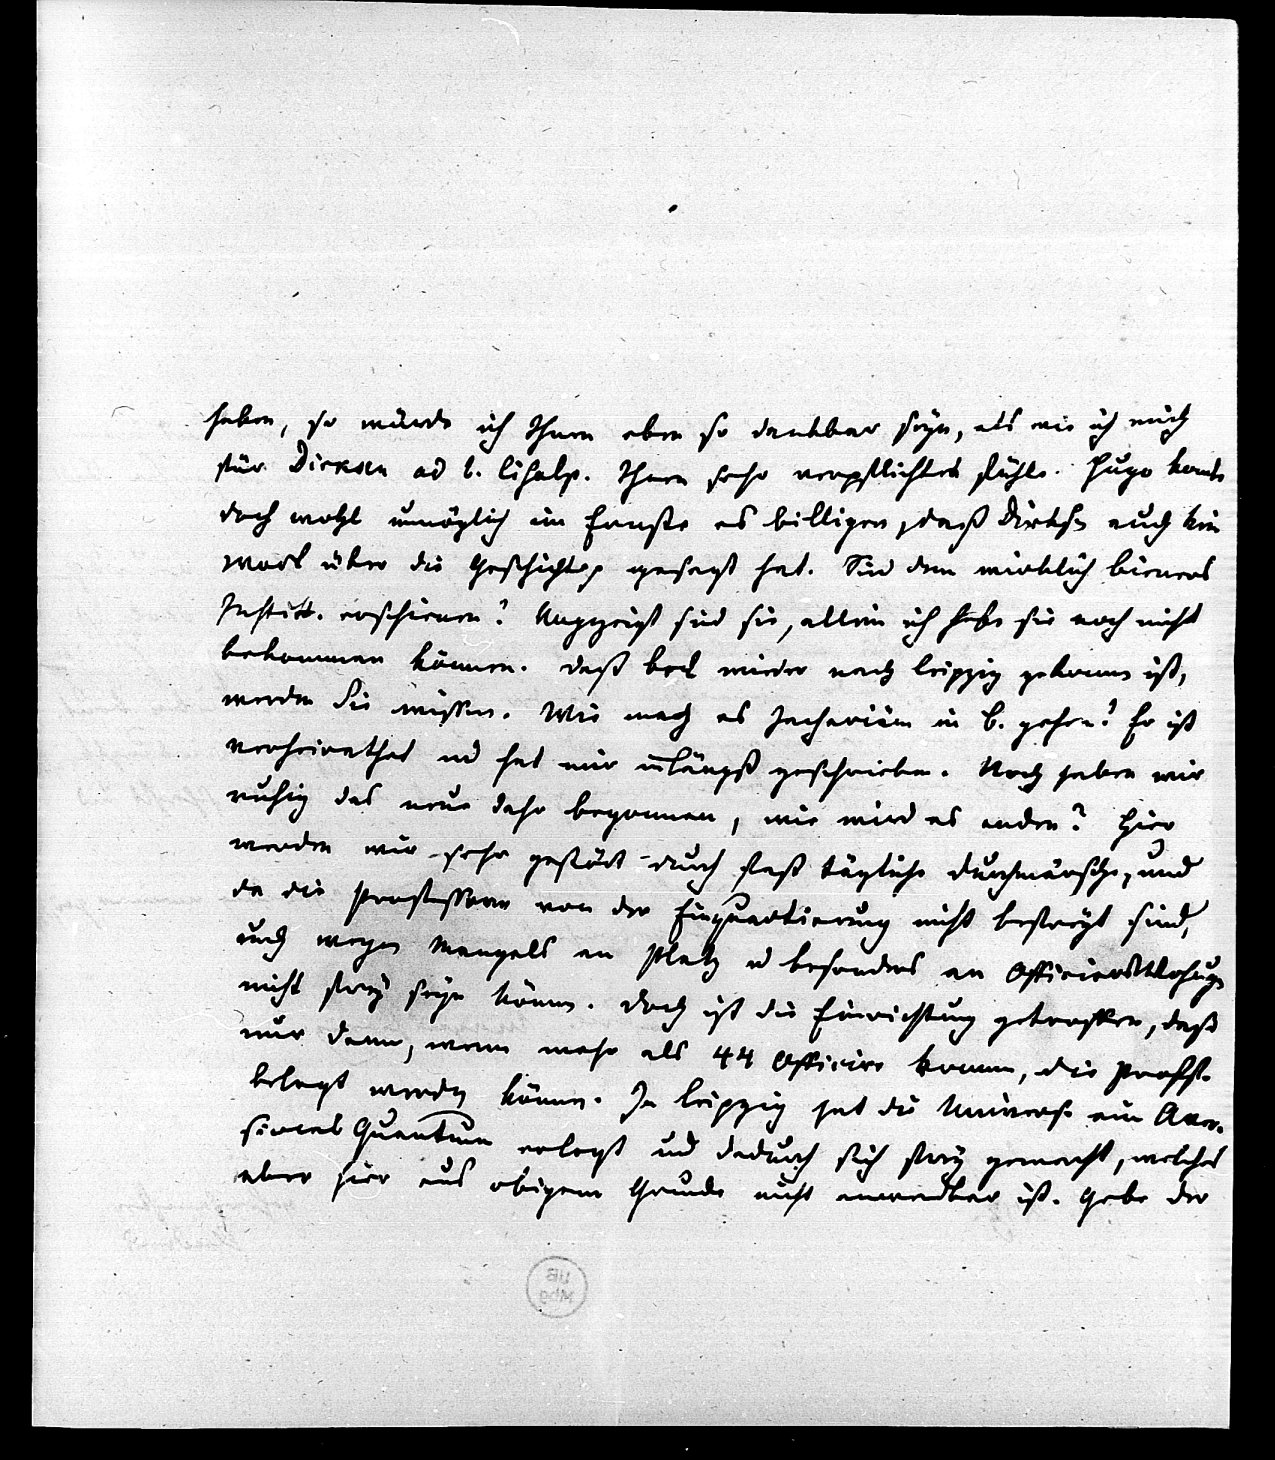 haben, so würde ich Ihnen eben so dankbar seyn, als wie ich mich
für Dirksen ad l. Ihnen sehr verpflichtet fühle. Hugo konnte
doch wohl unmöglich im Ernste es billigen, daß Dirksen auch kein
Wort über die gesagt hat. Sind denn wirklich Bieners
Institt. erschienen? Angezeigt sind sie, allein ich habe sie noch nicht
bekommen können. Daß wieder nach Leipzig gekommen ist,
werden Sie wissen. Wie mag es Zachariäen in B. gehen? Er ist
verheirathet und hat mir unlängst geschrieben. Noch haben wir
ruhig das neue Jahr begonnen, wie wird es enden? Hier
werden wir sehr gestört durch fast tägliche Durchmärsche, und
da die Professoren von der Einquartierung nicht befreyt sind,
auch wegen Mangels an Platz u besonders an Officierswohnungen
nicht frey seyn können. Doch ist die Einrichtung getroffen, daß
nur dann, wenn mehr als 44 Officire kommen, die Profess.
belegt werden können. In Leipzig hat die Univers. ein Aver-
sionalQuantum erlegt und dadurch sich frey gemacht, welches
aber hier aus obigem Grunde nicht anwendbar ist. Gebe der
UB
Mbg